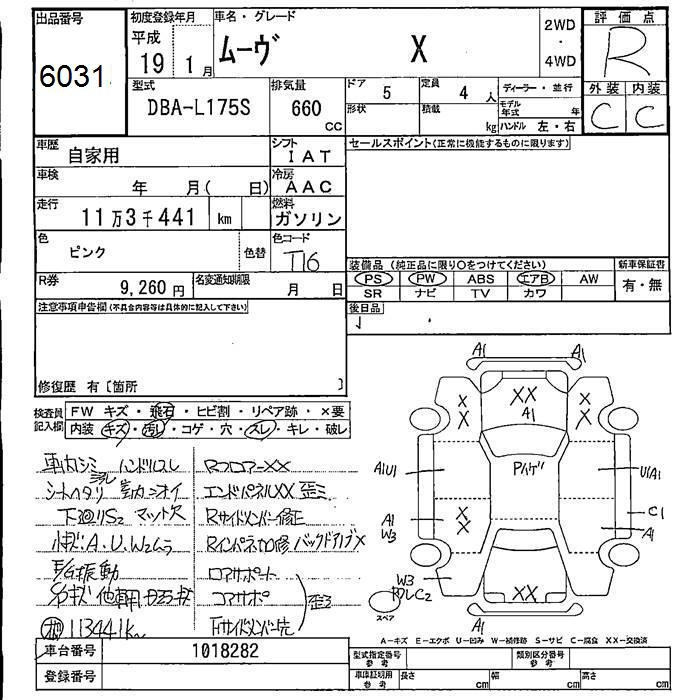 出品番号
6031
初度登録年月
平成
19 1月
車名・グレード
ムーヴ X
2WD
・
4WD
評価点
R
外装 内装
C C
型式
DBA-L175S
排気量
660
cc
ドア
5
定員
4 人
ディーラー・並行
形状
積載
kg
モデル年式 年
ハンドル 左・右
車歴
自家用
シフト
IAT
車検
年 月( 日)
冷房
AAC
走行
11万3千441 km
燃料
ガソリン
色
ピンク
色替
色コード
T16
R券
9,260円
名変通知期限
月 日
セールスポイント(正常に機能するものに限ります)
装備品(純正品に限り○をつけてください)
新車保証書
PS PW ABS エアB AW
SR ナビ TV カワ
有・無
後日品
注意事項申告欄(不具合内容等は具体的に記入して下さい)
修復歴 有〔箇所 〕
検査員記入欄
FW キズ・飛石・ヒビ割・リペア跡・×要
内装 キズ・汚れ・コゲ・穴・スレ・キレ・破レ
車内シミ ハンドルスレ
シートヘタリ
下回りS2 マット欠
小キズ A.U.W2ムラ
113441k
RフロアーXX
エンドパネルXX 歪ミ
Rサイドメンバー修正
RインパネCO修 バックドアゲX
コアサポート
コアサポ
歪ミ
A1 A1
XX
A1
X
X
X
X
A1U1
U1A1
C1
A1
A1
W3
X
X
W3
C2
XX
A1
スペア
A-キズ E-エクボ U-凹み W-補修跡 S-サビ C-腐食 XX-交換済
車台番号
1018282
登録番号
型式指定番号
参考
類別区分番号
参考
車庫証明用
参考
長さ cm
幅 cm
高さ cm